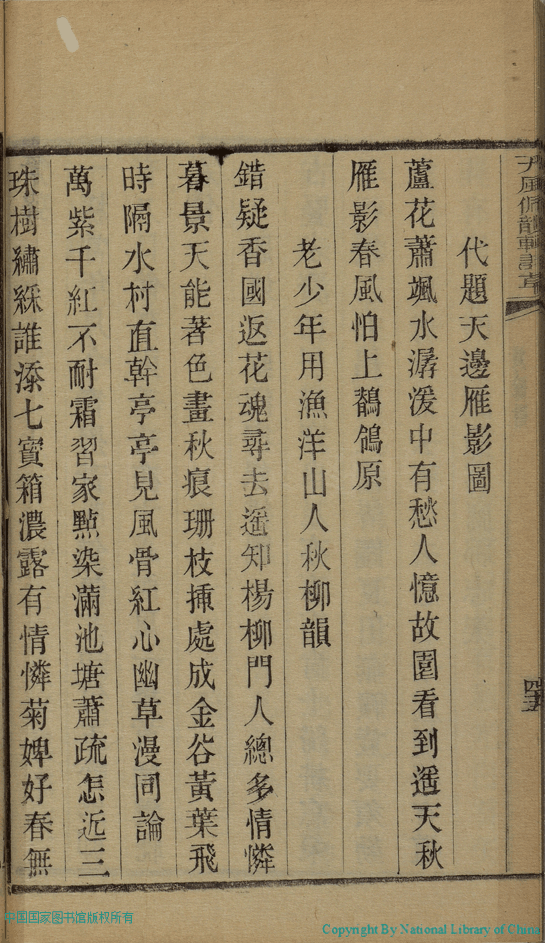 代題天邊雁影圖
蘆花蕭颯水潺湲中有愁人憶故園看到遥天秋
雁影春風怕上鶺鴒原
老少年用漁洋山人秋柳韻
錯疑香國返花魂尋去遥知楊柳門人總多情憐
暮景天能著色畫秋痕珊枝揷處成金谷黃葉飛
時隔水村直幹亭亭見風骨紅心幽草漫同論
萬紫千紅不耐霜習家㸃染滿池塘蕭疏怎近三
珠樹繡綵誰添七寶箱濃露有情憐菊婢好春無
中国国家图书馆版权所有
Copyright By National Library of China